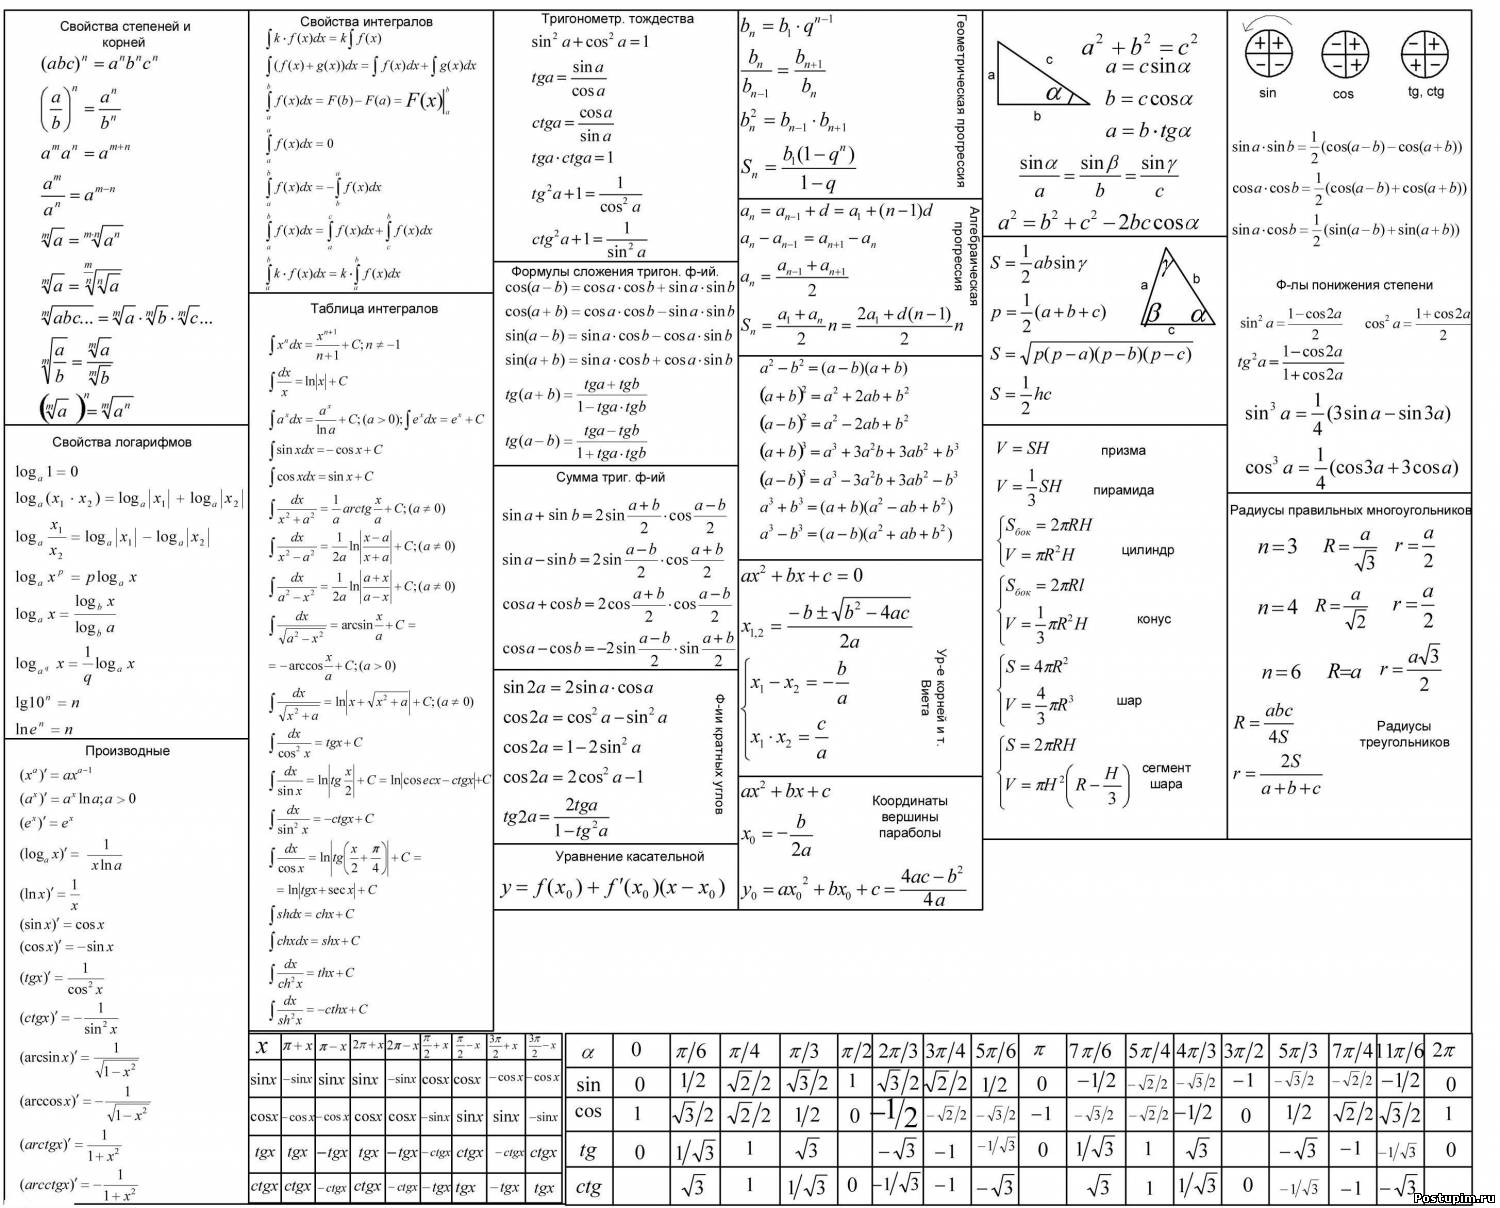 Свойства степеней и
корней
(abc)ⁿ = aⁿbⁿcⁿ
(a/b)ⁿ = aⁿ/bⁿ
aᵐaⁿ = aᵐ⁺ⁿ
aᵐ/aⁿ = aᵐ⁻ⁿ
ᵐ√a = ᵐ·ⁿ√aⁿ
ᵐ√a = ᵐ/ⁿ√ⁿ√a
ᵐ√abc... = ᵐ√a · ᵐ√b · ᵐ√c...
ᵐ√(a/b) = ᵐ√a/ᵐ√b
(ᵐ√a)ⁿ = ᵐ√aⁿ
Свойства логарифмов
logₐ 1 = 0
logₐ(x₁ · x₂) = logₐ|x₁| + logₐ|x₂|
logₐ x₁/x₂ = logₐ|x₁| − logₐ|x₂|
logₐ xᵖ = p logₐ x
logₐ x = log_b x/log_b a
log_{a^q} x = 1/q logₐ x
lg10ⁿ = n
lneⁿ = n
Производные
(xᵃ)′ = axᵃ⁻¹
(aˣ)′ = aˣ ln a; a > 0
(eˣ)′ = eˣ
(logₐ x)′ = 1/(x ln a)
(ln x)′ = 1/x
(sin x)′ = cos x
(cos x)′ = −sin x
(tgx)′ = 1/cos² x
(ctgx)′ = −1/sin² x
(arcsin x)′ = 1/√(1−x²)
(arccos x)′ = −1/√(1−x²)
(arctgx)′ = 1/(1+x²)
(arcctgx)′ = −1/(1+x²)
Свойства интегралов
∫k · f(x)dx = k∫f(x)
∫(f(x) + g(x))dx = ∫f(x)dx + ∫g(x)dx
∫ₐᵇ f(x)dx = F(b) − F(a) = F(x)|ₐᵇ
∫ₐᵃ f(x)dx = 0
∫ₐᵇ f(x)dx = −∫_b^a f(x)dx
∫ₐᵇ f(x)dx = ∫ₐᶜ f(x)dx + ∫_c^b f(x)dx
∫ₐᵇ k · f(x)dx = k · ∫ₐᵇ f(x)dx
Таблица интегралов
∫xⁿdx = xⁿ⁺¹/(n+1) + C; n ≠ −1
∫dx/x = ln|x| + C
∫aˣdx = aˣ/ln a + C; (a > 0); ∫eˣdx = eˣ + C
∫sin xdx = −cos x + C
∫cos xdx = sin x + C
∫dx/(x² + a²) = 1/a arctg x/a + C; (a ≠ 0)
∫dx/(x² − a²) = 1/2a ln|(x−a)/(x+a)| + C; (a ≠ 0)
∫dx/(a² − x²) = 1/2a ln|(a+x)/(a−x)| + C; (a ≠ 0)
∫dx/√(a² − x²) = arcsin x/a + C =
= −arccos x/a + C; (a > 0)
∫dx/√(x² + a) = ln|x + √(x² + a)| + C; (a ≠ 0)
∫dx/cos² x = tgx + C
∫dx/sin x = ln|tg x/2| + C = ln|cosecx − ctgx| + C
∫dx/sin² x = −ctgx + C
∫dx/cos x = ln|tg(x/2 + π/4)| + C =
= ln|tgx + sec x| + C
∫shdx = chx + C
∫chxdx = shx + C
∫dx/ch² x = thx + C
∫dx/sh² x = −cthx + C
Тригонометр. тождества
sin² a + cos² a = 1
tga = sin a/cos a
ctga = cos a/sin a
tga · ctga = 1
tg²a + 1 = 1/cos² a
ctg²a + 1 = 1/sin² a
Формулы сложения тригон. ф-ий.
cos(a − b) = cos a · cos b + sin a · sin b
cos(a + b) = cos a · cos b − sin a · sin b
sin(a − b) = sin a · cos b − cos a · sin b
sin(a + b) = sin a · cos b + cos a · sin b
tg(a + b) = (tga + tgb)/(1 − tga · tgb)
tg(a − b) = (tga − tgb)/(1 + tga · tgb)
Сумма триг. ф-ий
sin a + sin b = 2sin (a+b)/2 · cos (a−b)/2
sin a − sin b = 2sin (a−b)/2 · cos (a+b)/2
cos a + cos b = 2cos (a+b)/2 · cos (a−b)/2
cos a − cos b = −2sin (a−b)/2 · sin (a+b)/2
sin 2a = 2sin a · cos a
cos 2a = cos² a − sin² a
cos 2a = 1 − 2sin² a
cos 2a = 2cos² a − 1
tg2a = 2tga/(1 − tg²a)
Ф-ии кратных углов
Уравнение касательной
y = f(x₀) + f′(x₀)(x − x₀)
bₙ = b₁ · qⁿ⁻¹
bₙ/bₙ₋₁ = bₙ₊₁/bₙ
bₙ² = bₙ₋₁ · bₙ₊₁
Sₙ = b₁(1 − qⁿ)/(1 − q)
Геометрическая прогрессия
aₙ = aₙ₋₁ + d = a₁ + (n−1)d
aₙ − aₙ₋₁ = aₙ₊₁ − aₙ
aₙ = (aₙ₋₁ + aₙ₊₁)/2
Sₙ = (a₁ + aₙ)/2 n = (2a₁ + d(n−1))/2 n
Алгебраическая
прогрессия
a² − b² = (a − b)(a + b)
(a + b)² = a² + 2ab + b²
(a − b)² = a² − 2ab + b²
(a + b)³ = a³ + 3a²b + 3ab² + b³
(a − b)³ = a³ − 3a²b + 3ab² − b³
a³ + b³ = (a + b)(a² − ab + b²)
a³ − b³ = (a − b)(a² + ab + b²)
ax² + bx + c = 0
x₁,₂ = (−b ± √(b² − 4ac))/2a
x₁ − x₂ = −b/a
x₁ · x₂ = c/a
Ур-е корней и т.
Виета
ax² + bx + c
x₀ = −b/2a
y₀ = ax₀² + bx₀ + c = (4ac − b²)/4a
Координаты
вершины
параболы
a
c
b
α
a² + b² = c²
a = c sin α
b = c cos α
a = b · tgα
sin α/a = sin β/b = sin γ/c
a² = b² + c² − 2bc cos α
S = 1/2 ab sin γ
p = 1/2 (a + b + c)
S = √(p(p − a)(p − b)(p − c))
S = 1/2 hc
γ
a
b
β
α
c
V = SH призма
V = 1/3 SH пирамида
Sбок = 2πRH
V = πR²H
цилиндр
Sбок = 2πRl
V = 1/3 πR²H
конус
S = 4πR²
V = 4/3 πR³
шар
S = 2πRH
V = πH²(R − H/3)
сегмент
шара
+ + − −
− + − +
− + + −
sin cos tg, ctg
sin a · sin b = 1/2 (cos(a − b) − cos(a + b))
cos a · cos b = 1/2 (cos(a − b) + cos(a + b))
sin a · cos b = 1/2 (sin(a − b) + sin(a + b))
Ф-лы понижения степени
sin² a = (1 − cos 2a)/2 cos² a = (1 + cos 2a)/2
tg²a = (1 − cos 2a)/(1 + cos 2a)
sin³ a = 1/4 (3sin a − sin 3a)
cos³ a = 1/4 (cos 3a + 3cos a)
Радиусы правильных многоугольников
n = 3 R = a/√3 r = a/2
n = 4 R = a/√2 r = a/2
n = 6 R = a r = a√3/2
R = abc/4S
r = 2S/(a + b + c)
Радиусы
треугольников
x π + x π − x 2π + x 2π − x π/2 + x π/2 − x 3π/2 + x 3π/2 − x
sinx −sinx sinx sinx −sinx cosx cosx −cosx −cosx
cosx −cosx −cosx cosx cosx −sinx sinx sinx −sinx
tgx tgx −tgx tgx −tgx −ctgx ctgx −ctgx ctgx
ctgx ctgx −ctgx ctgx −ctgx −tgx tgx −tgx tgx
α 0 π/6 π/4 π/3 π/2 2π/3 3π/4 5π/6 π 7π/6 5π/4 4π/3 3π/2 5π/3 7π/4 11π/6 2π
sin 0 1/2 √2/2 √3/2 1 √3/2 √2/2 1/2 0 −1/2 −√2/2 −√3/2 −1 −√3/2 −√2/2 −1/2 0
cos 1 √3/2 √2/2 1/2 0 −1/2 −√2/2 −√3/2 −1 −√3/2 −√2/2 −1/2 0 1/2 √2/2 √3/2 1
tg 0 1/√3 1 √3 −√3 −1 −1/√3 0 1/√3 1 √3 −√3 −1 −1/√3 0
ctg √3 1 1/√3 0 −1/√3 −1 −√3 √3 1 1/√3 0 −1/√3 −1 −√3
Postupim.ru